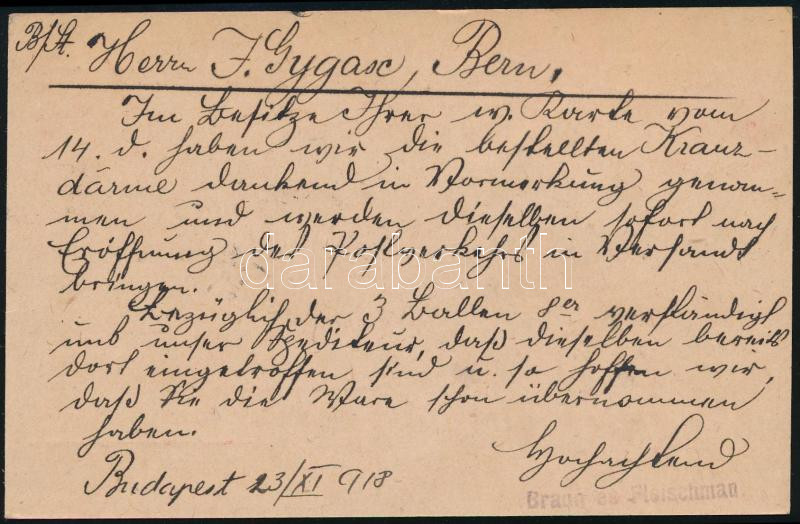 B/St. Herrn J. Gygax, Bern.
Im Besitze Ihrer w. Karte vom
14. d. haben wir die bestellten Kranz-
därme dankend in Vormerkung genom-
men und werden dieselben sofort nach
Eröffnung des Postverkehrs in Versandt
bringen.
Bezüglich der 3 Ballen 8er verständigt
uns unser Spediteur, daß dieselben bereits
dort eingetroffen sind u. so hoffen wir,
daß Sie die Ware schon übernommen
haben.
Hochachtend
Budapest 23/XI 918
Braun és Fleischman
darabanth